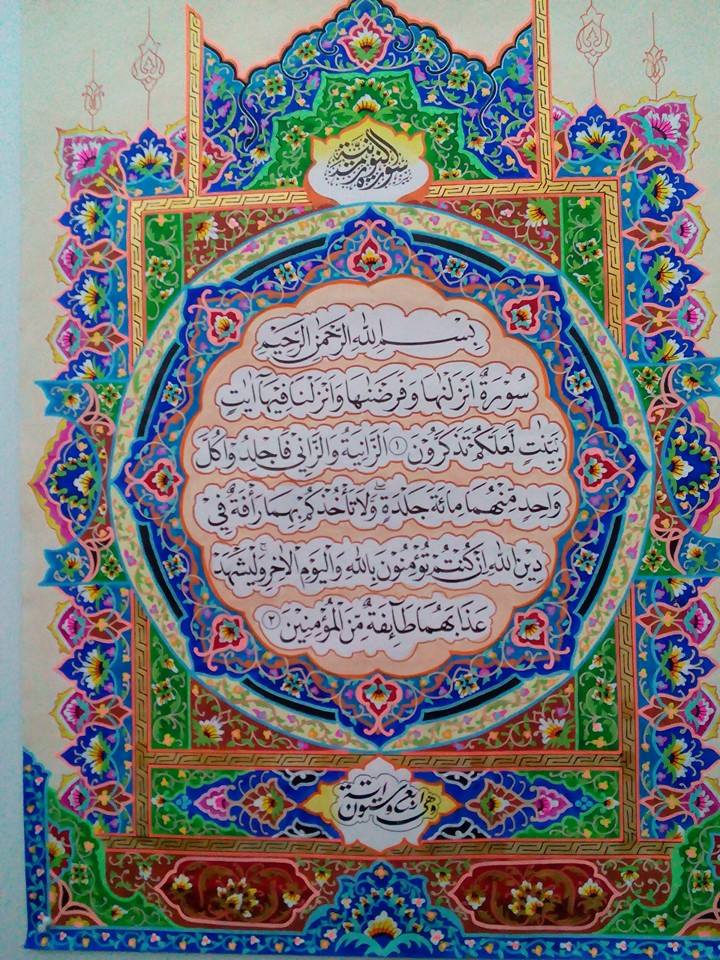 سورة النور مدنية
بِسْمِ اللهِ الرَّحْمٰنِ الرَّحِيْمِ
سُوْرَةٌ اَنْزَلْنٰهَا وَفَرَضْنٰهَا وَاَنْزَلْنَا فِيْهَآ اٰيٰتٍ
بَيِّنٰتٍ لَّعَلَّكُمْ تَذَكَّرُوْنَ ١ اَلزَّانِيَةُ وَالزَّانِيْ فَاجْلِدُوْا كُلَّ
وَاحِدٍ مِّنْهُمَا مِائَةَ جَلْدَةٍ ۖ وَّلَا تَأْخُذْكُمْ بِهِمَا رَأْفَةٌ فِيْ
دِيْنِ اللهِ اِنْ كُنْتُمْ تُؤْمِنُوْنَ بِاللهِ وَالْيَوْمِ الْاٰخِرِ ۚ وَلْيَشْهَدْ
عَذَابَهُمَا طَآئِفَةٌ مِّنَ الْمُؤْمِنِيْنَ ٢
وهي اربع وستون اية